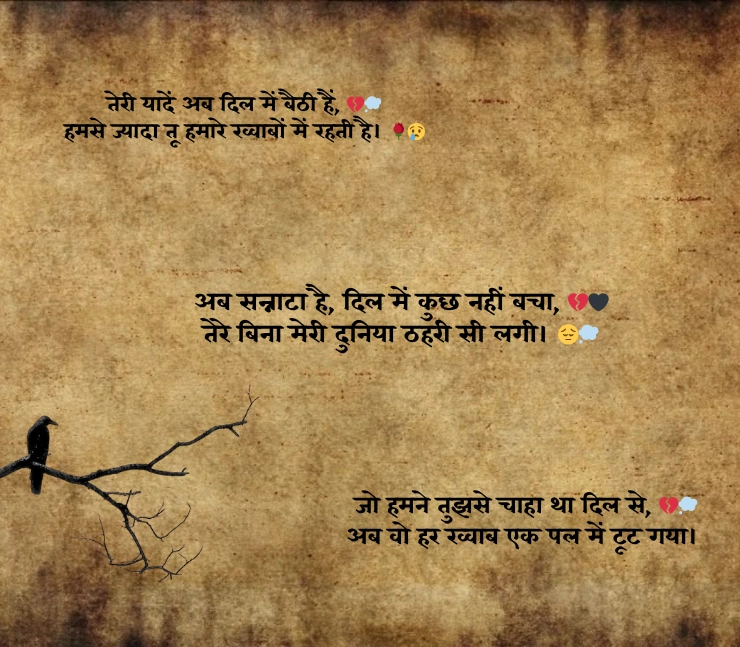 तेरी यादें अब दिल में बैठी हैं, 💔💭
हमसे ज्यादा तू हमारे ख्वाबों में रहती है। 🌹😢
अब सन्नाटा है, दिल में कुछ नहीं बचा, 💔🖤
तेरे बिना मेरी दुनिया ठहरी सी लगी। 😔💭
जो हमने तुझसे चाहा था दिल से, 💔💭
अब वो हर ख्वाब एक पल में टूट गया।